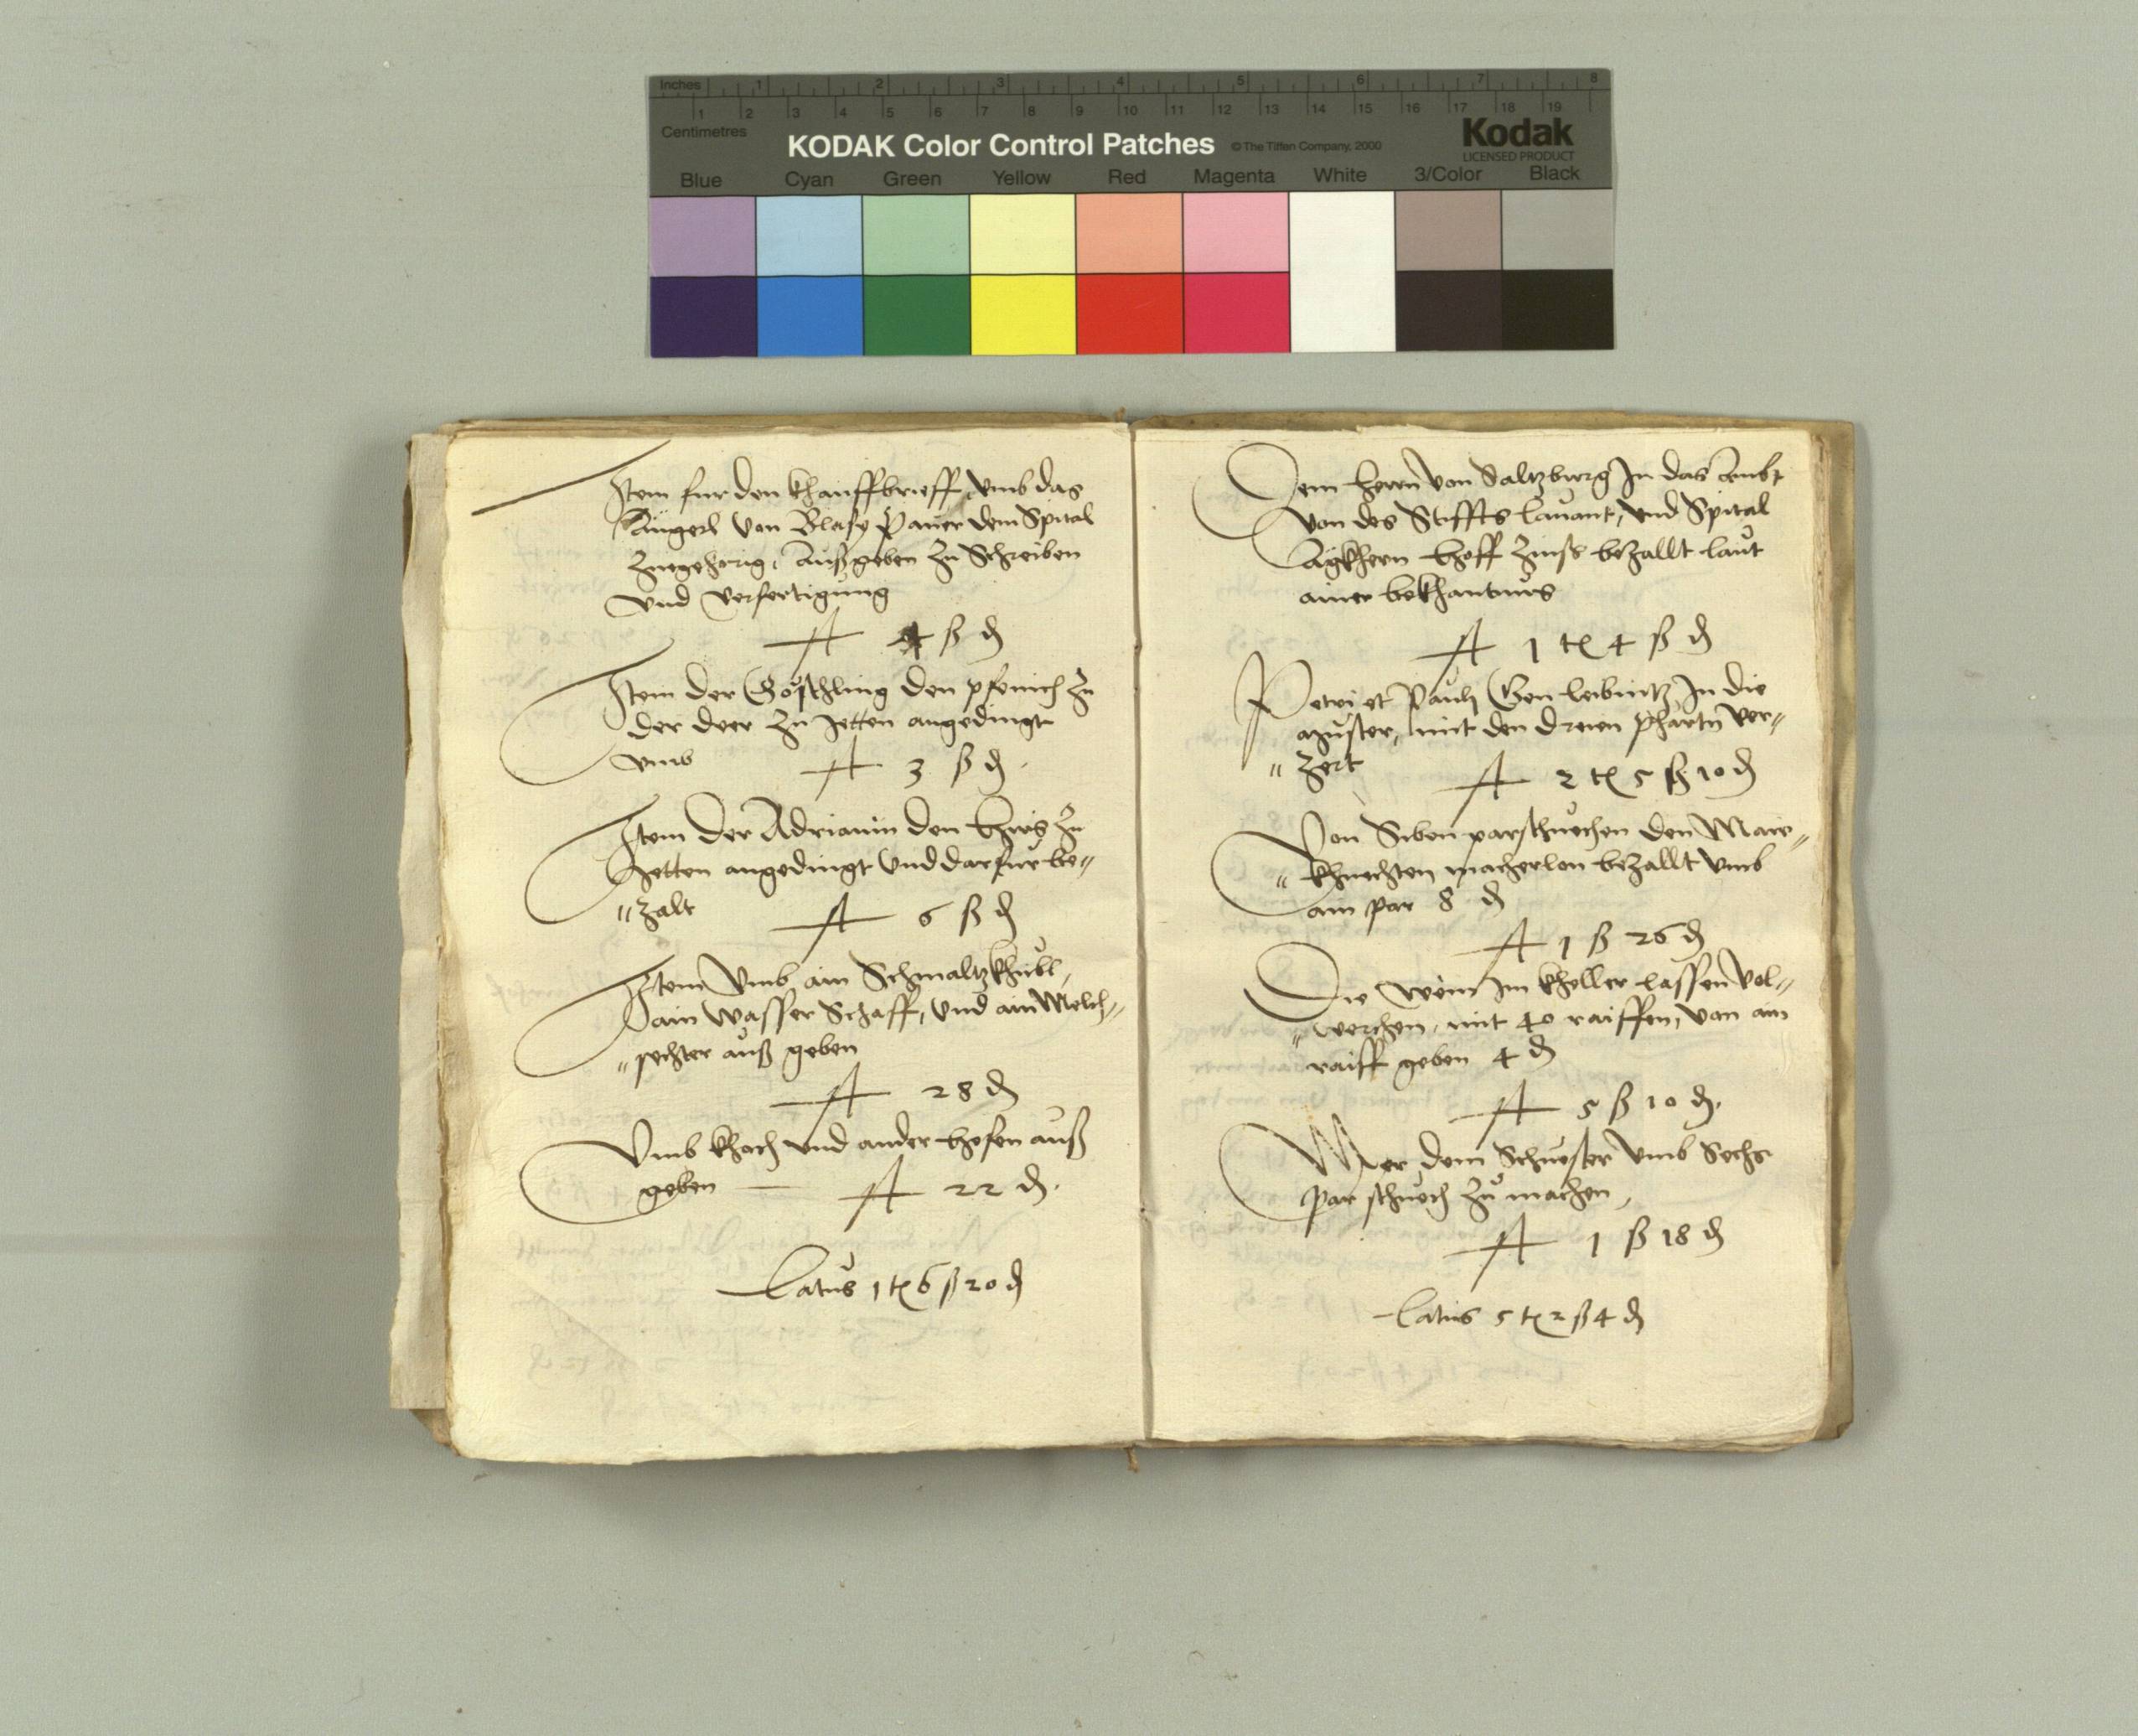 Inches 1 2 3 4 5 6 7 8
1 2 3 4 5 6 7 8 9 10 11 12 13 14 15 16 17 18 19
Centimetres
KODAK Color Control Patches © The Tiffen Company, 2000 Kodak
LICENSED PRODUCT
Blue Cyan Green Yellow Red Magenta White 3/Color Black
Item fur den khauffbrieff umb das
Ängerl von Blasy Paurn dem Spital
zuegehorig, außgeben zu Schreiben
und verfertigung
A 4 ß ₰
Item der Göschling den pfenich zu
der deer zu Jetten angedingt
umb A 3 ß ₰.
Item der Adrianin den Hirs zu
Jetten angedingt und darfur be〃
〃zalt A 6 ß ₰
Item umb ain Schmaltzkhübl,
ain wasser Schaff, und ain Melch〃
〃sechter auß geben
A 28 ₰
Umb khoch und ander Hefen auß
geben — A 22 ₰.
Latus 1 tl 6 ß 20 ₰
Dem herrn von Saltzburg In das Ambt
von des Stiffts Lauant, und Spital
Äkhern Hoff Zinß bezallt laut
ainer bekhantnus
A 1 tl 4 ß ₰
Petri et Pauli Gen Leibnitz In die
muster, mit den dreien pharten ver〃
〃zert A 2 tl 5 ß 10 ₰
Von Siben par schuechen den Mair〃
〃khnechten macherlon bezallt umb
ain par 8 ₰
A 1 ß 26 ₰
Die wein im kheller lassen vol〃
〃werchen, mit 40 raiffen, von ain
raiff geben 4 ₰
A 5 ß 10 ₰.
Mer dem Schuester umb Sechs
par schuech zu machen,
A 1 ß 18 ₰
Latus 5 tl 2 ß 4 ₰